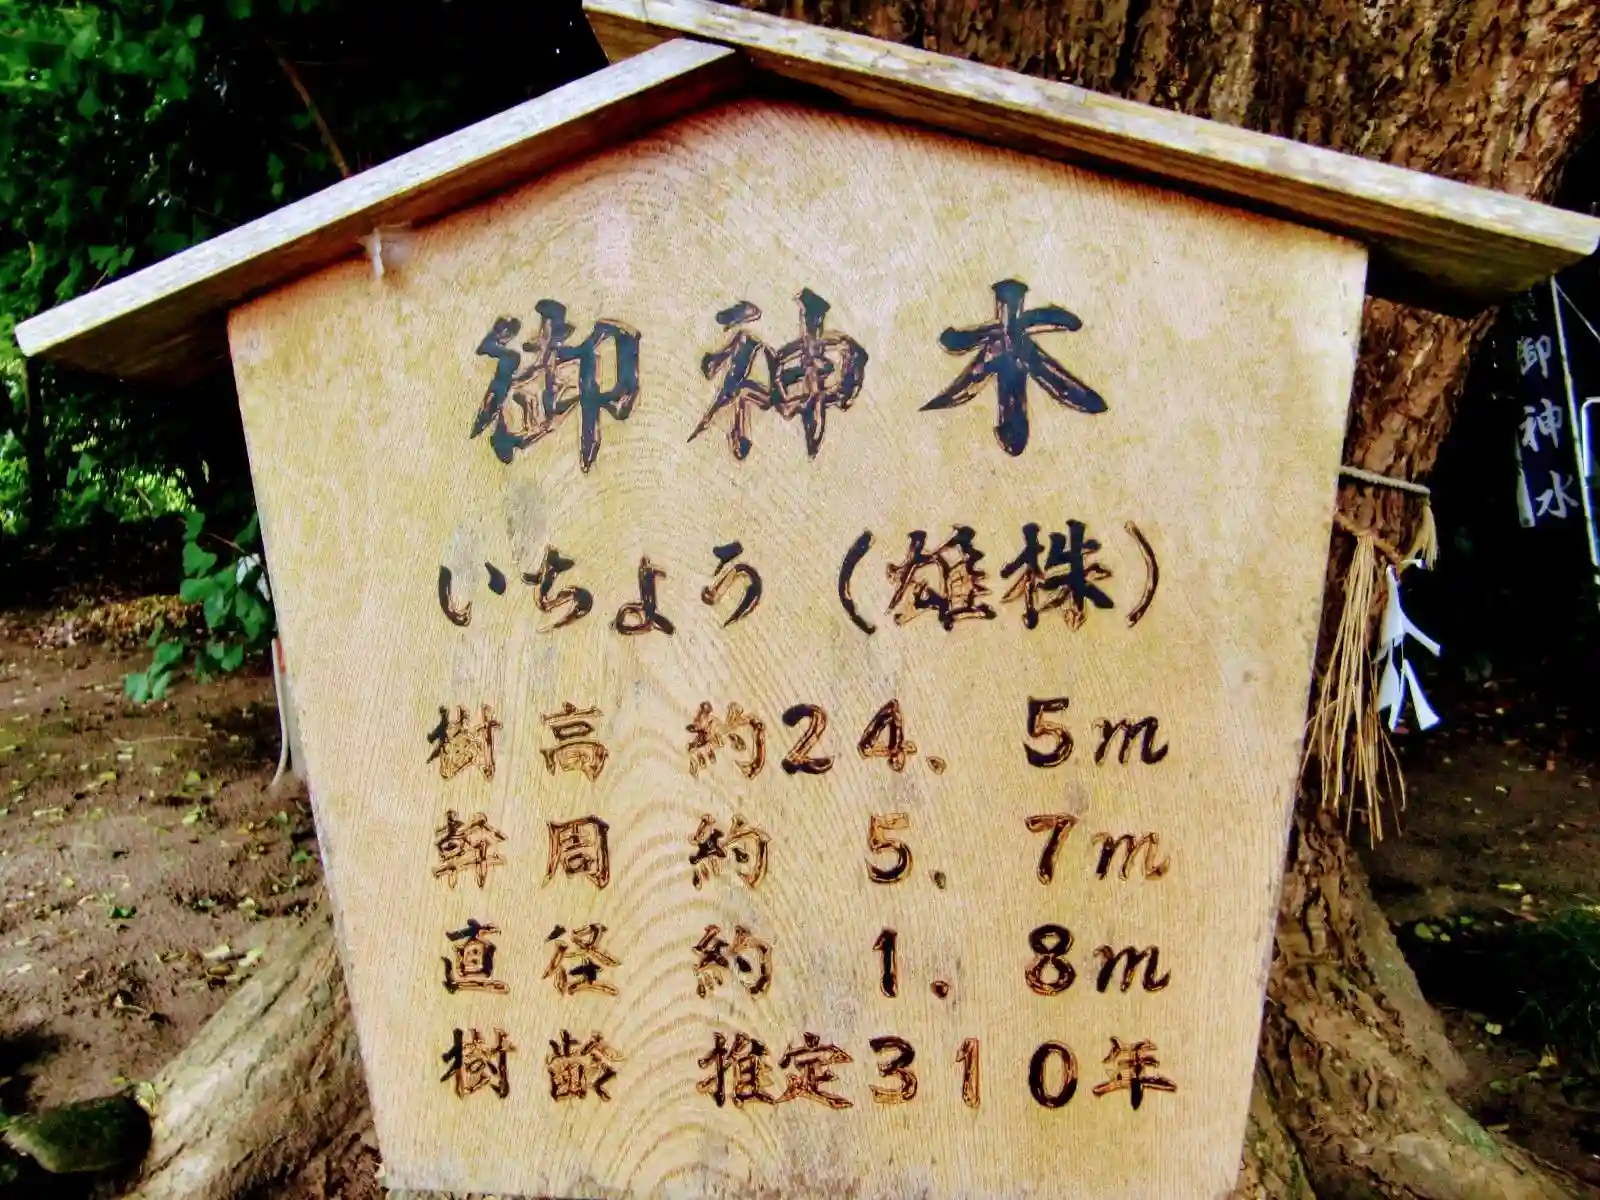 御神木
いちょう（雄株）
樹高 約24.5m
幹周 約5.7m
直径 約1.8m
樹齢 推定310年
御神水